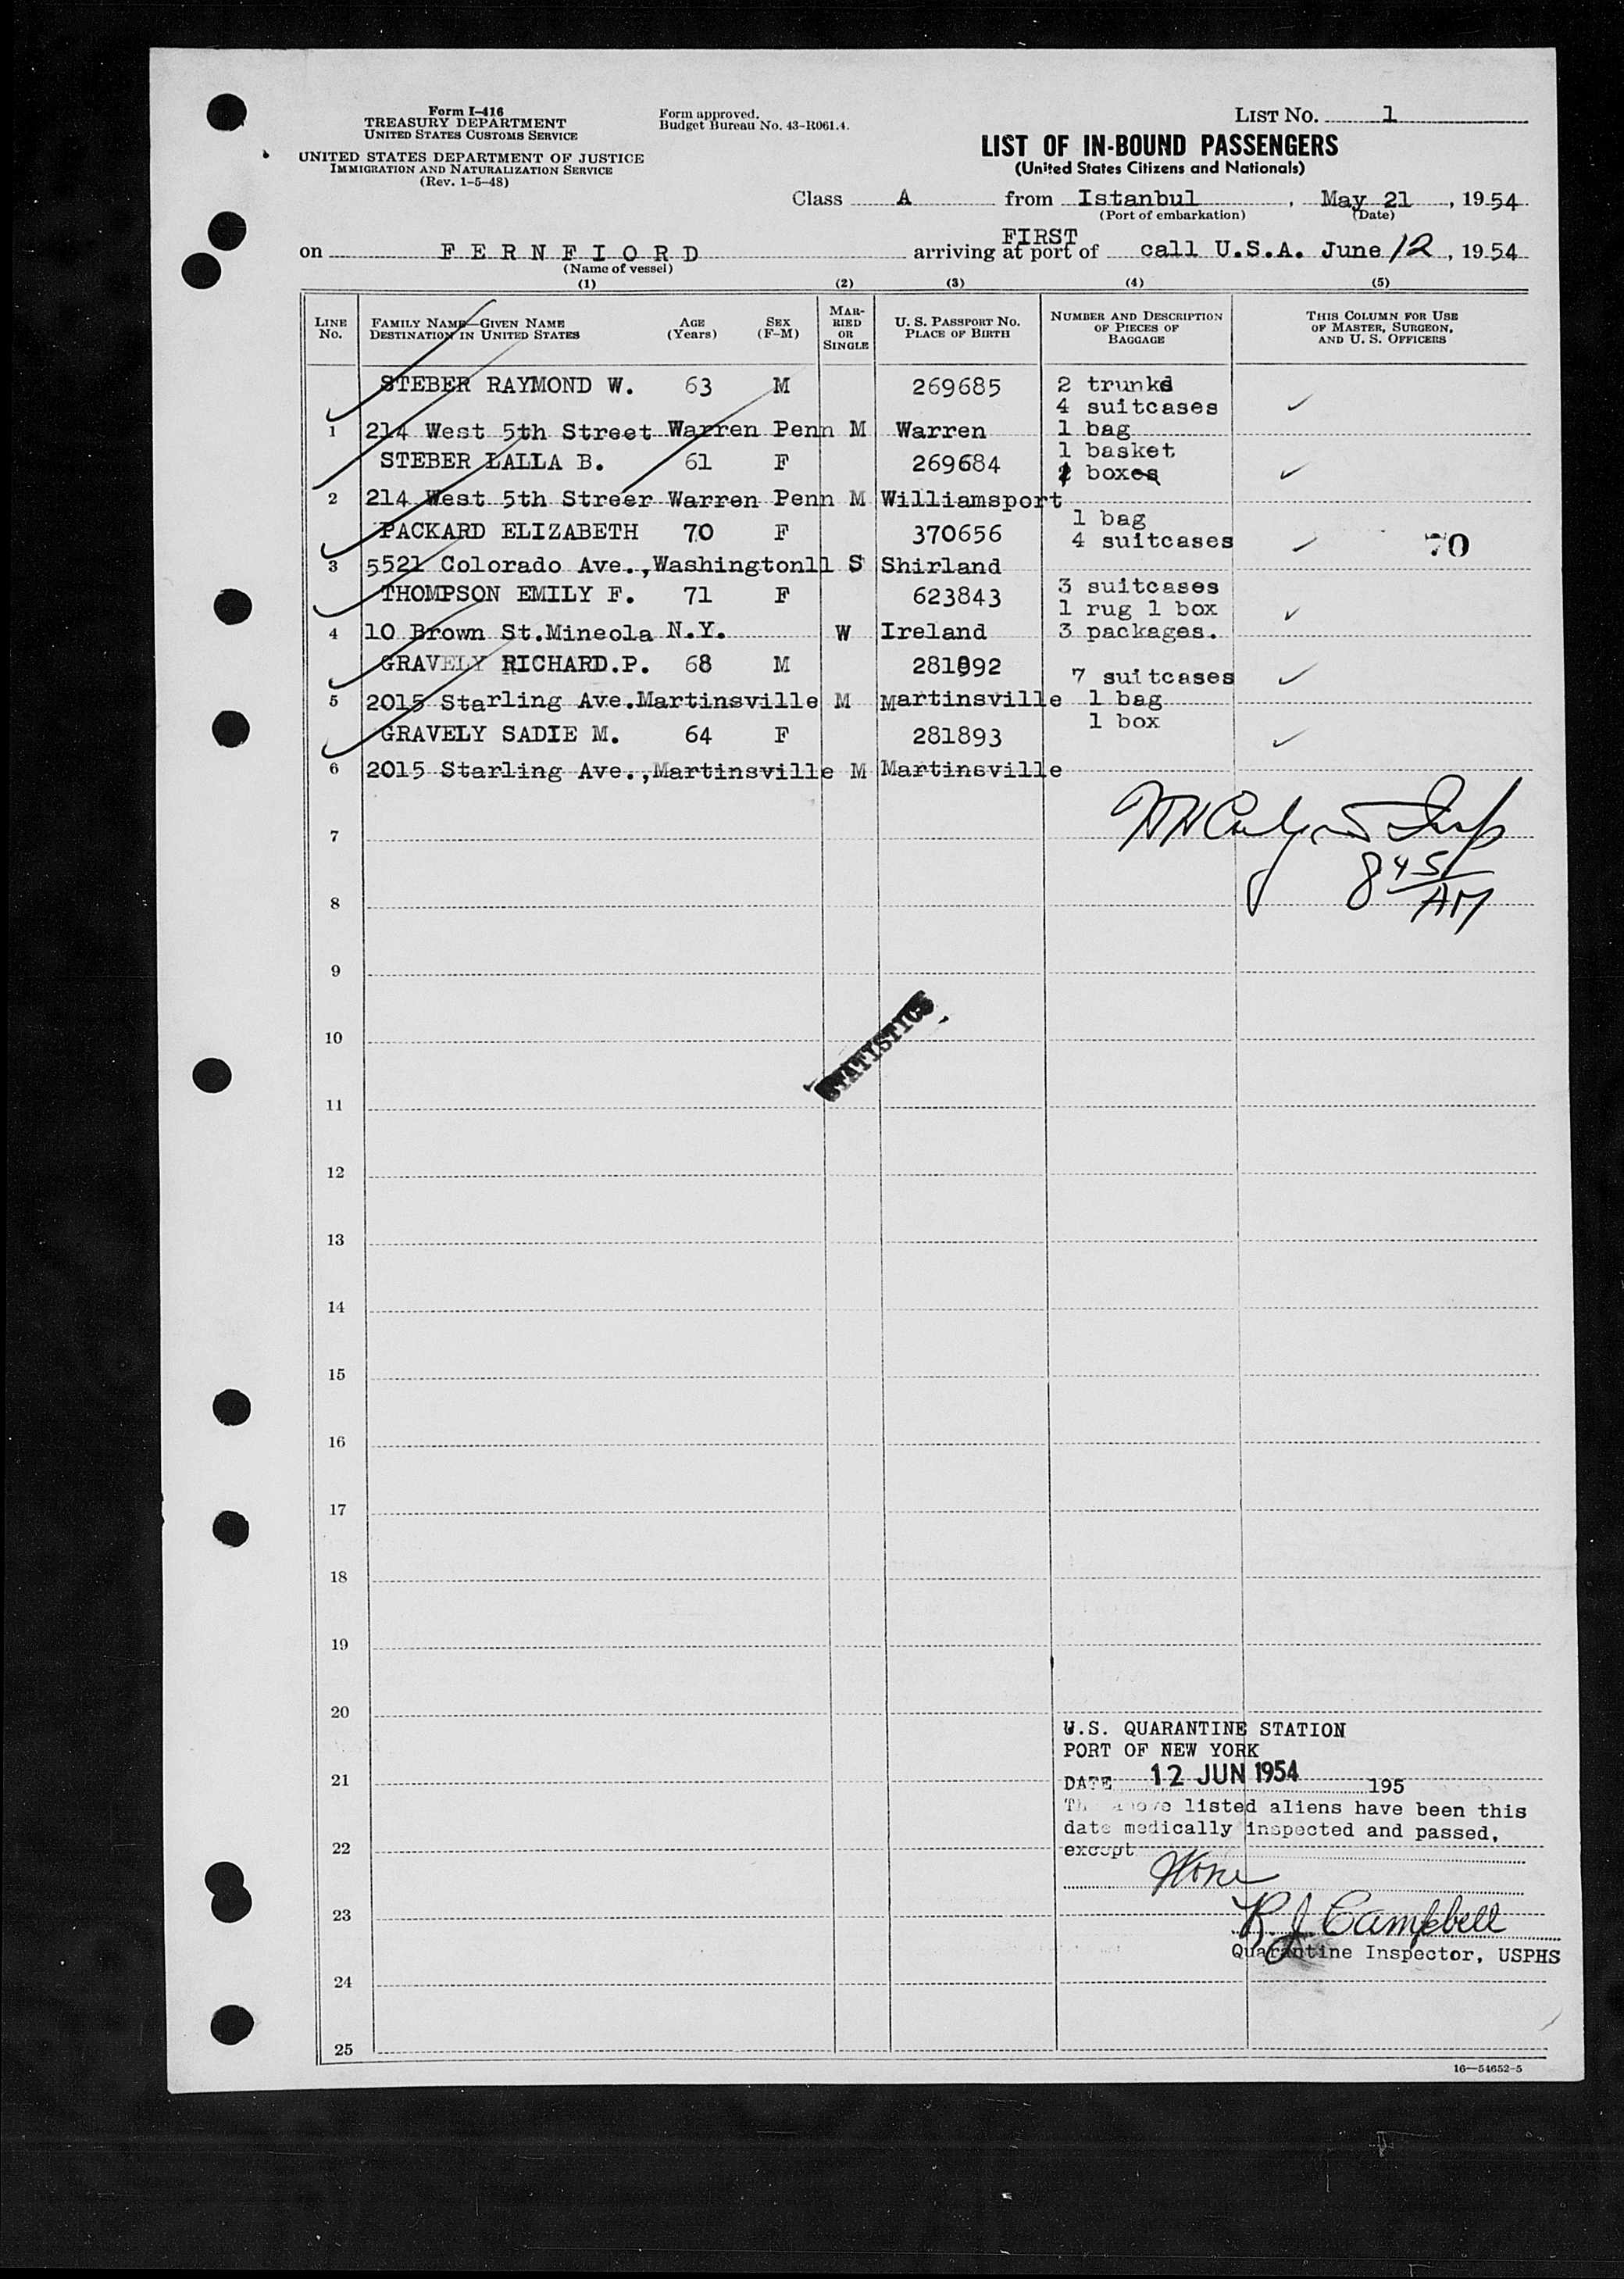 Form I-416
TREASURY DEPARTMENT
UNITED STATES CUSTOMS SERVICE
UNITED STATES DEPARTMENT OF JUSTICE
IMMIGRATION AND NATURALIZATION SERVICE
(Rev. 1-5-48)
Form approved.
Budget Bureau No. 43-R061.4.
LIST NO. 1
LIST OF IN-BOUND PASSENGERS
(United States Citizens and Nationals)
Class A from Istanbul, May 21, 1954
(Port of embarkation) (Date)
on FERNFIORD arriving at FIRST port of call U.S.A. June 12, 1954
(Name of vessel)
(1) (2) (3) (4) (5)
LINE NO. FAMILY NAME—GIVEN NAME DESTINATION IN UNITED STATES AGE (Years) SEX (F-M) MARRIED OR SINGLE U. S. PASSPORT NO. PLACE OF BIRTH NUMBER AND DESCRIPTION OF PIECES OF BAGGAGE THIS COLUMN FOR USE OF MASTER, SURGEON, AND U. S. OFFICERS
STEBER RAYMOND W. 63 M 269685 2 trunks
4 suitcases
1 214 West 5th Street Warren Penn M Warren 1 bag
1 basket
STEBER LALLA B. 61 F 269684 boxes
2 214 West 5th Streer Warren Penn M Williamsport
1 bag
PACKARD ELIZABETH 70 F 370656 4 suitcases 70
3 5521 Colorado Ave.,Washington11 S Shirland
THOMPSON EMILY F. 71 F 623843 3 suitcases
1 rug 1 box
4 10 Brown St.Mineola N.Y. W Ireland 3 packages.
GRAVELY RICHARD.P. 68 M 281892 7 suitcases
5 2015 Starling Ave.Martinsville M Martinsville 1 bag
1 box
GRAVELY SADIE M. 64 F 281893
6 2015 Starling Ave.,Martinsville M Martinsville
7
8 45
AM
8
9
10
STATISTICS
11
12
13
14
15
16
17
18
19
20
U.S. QUARANTINE STATION
PORT OF NEW YORK
21 DATE 12 JUN 1954 195
The above listed aliens have been this
date medically inspected and passed,
22 except
None
23 R J Campbell
Quarantine Inspector, USPHS
24
25
16—54652-5